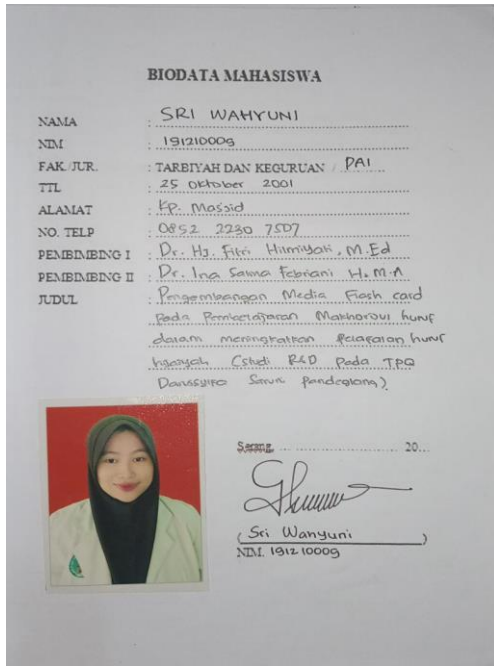 BIODATA MAHASISWA
NAMA : SRI WAHYUNI
NIM : 191210009
FAK./JUR. : TARBIYAH DAN KEGURUAN / PAI
TTL : 25 Oktober 2001
ALAMAT : Kp. Massid
NO. TELP : 0852 2230 7507
PEMBIMBING I : Dr. Hj. Fitri Hilmiyati, M.Ed
PEMBIMBING II : Dr. Ina Salma Febriani H. M.A
JUDUL : Pengembangan Media Flash card
Pada Pembelajaran Makhorijul huruf
dalam meningkatkan pelafalan huruf
hijaiyah (Studi R&D Pada TPQ
Darussyifa Saruni Pandeglang)
Serang, .......................... 20...
( Sri Wahyuni )
NIM. 191210009